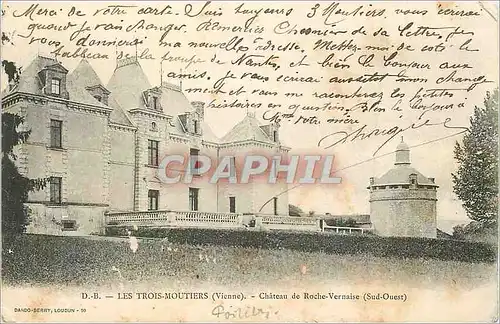 Merci de votre carte. Suis toujours 3 Moutiers, vous écrirai
quand je vais changer. Remerciez Chesnier de sa lettre, je
vous donnerai ma nouvelle adresse. Mettez moi de coté le
de la troupe de Nantes, et bien le bonjour aux
amis, je vous écrirai aussitot mon chang
ment et vous raconterai les petites
histoires en question. Bien le bonjour à
Mme votre mère
CPA-PHIL
D.-B. — LES TROIS-MOUTIERS (Vienne). - Château de Roche-Vernaise (Sud-Ouest)
DANDO-BERRY, LOUDUN - 10
Poitiers